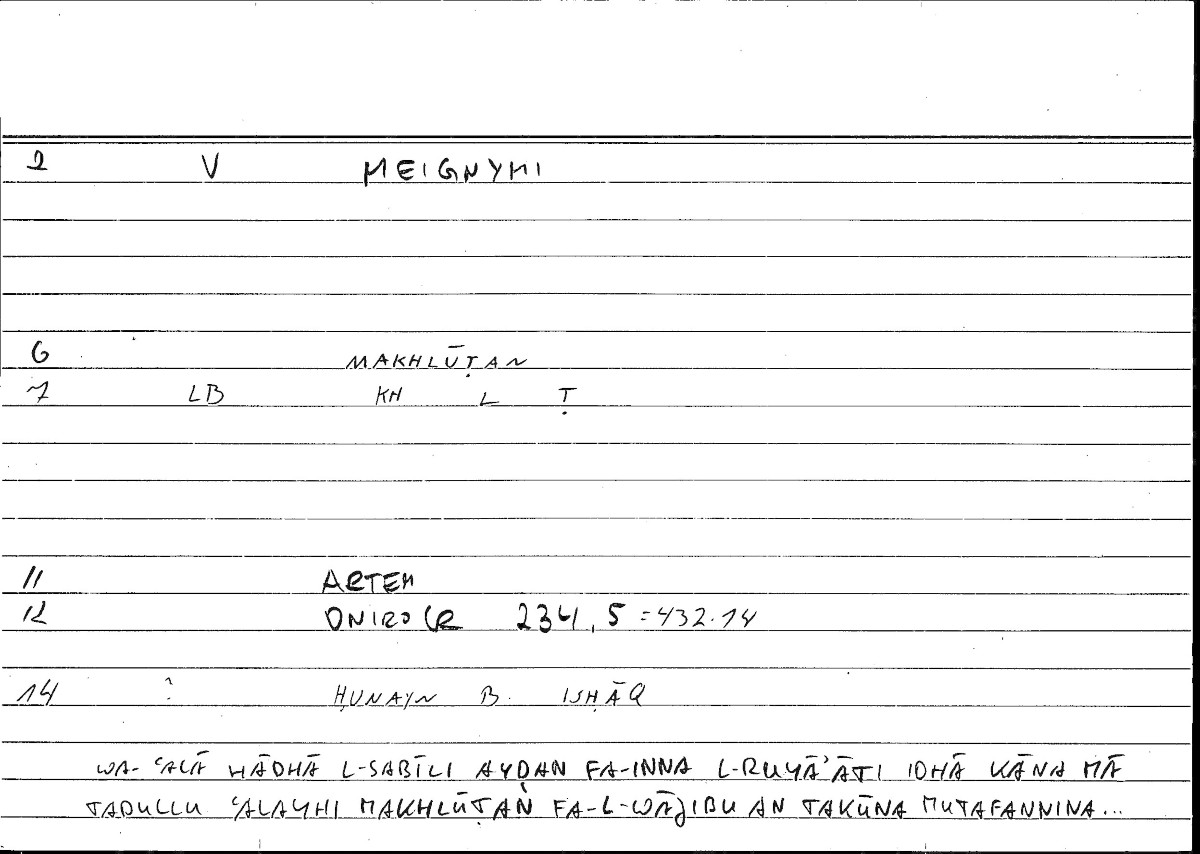 2 V MEIGNYMI
6 MAKHLŪṬAN
7 LB KH L Ṭ
11 ARTEM
12 ONIROCR 234,5 =432.14
14 : ḤUNAYN B. ISḤĀQ
WA-ʿALĀ HĀDHĀ L-SABĪLI AYḌAN FA-INNA L-RUYĀʾĀTI IDHĀ KĀNA MĀ
TADULLU ʿALAYHI MAKHLŪṬAN FA-L-WĀJIBU AN TAKŪNA MUTAFANNINA...